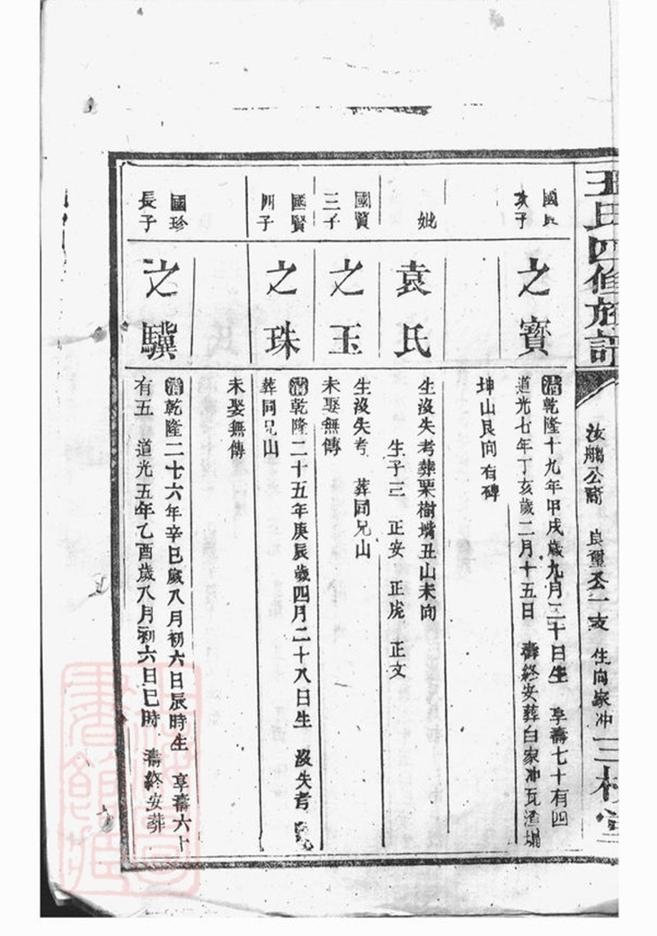 王氏四修族譜
汝鵬公裔 良璽 一支 住向家冲
三槐堂
國民
次子
之寶
清乾隆十九年甲戌歲九月三十日生 享壽七十有四
道光七年丁亥歲二月十五日 壽終安葬白家冲瓦渣塅
坤山艮向有碑
妣
袁氏
生沒失考葬栗樹嘴丑山未向
生子三 正安 正虎 正文
國賢
三子
之玉
生沒失考 葬同兄山
未娶無傳
國賢
四子
之珠
清乾隆二十五年庚辰歲四月二十八日生 沒失考
葬同兄山
未娶無傳
國珍
長子
之驥
清乾隆二十六年辛巳歲八月初六日辰時生 享壽六十
有五 道光五年乙酉歲八月初六日巳時 壽終安葬